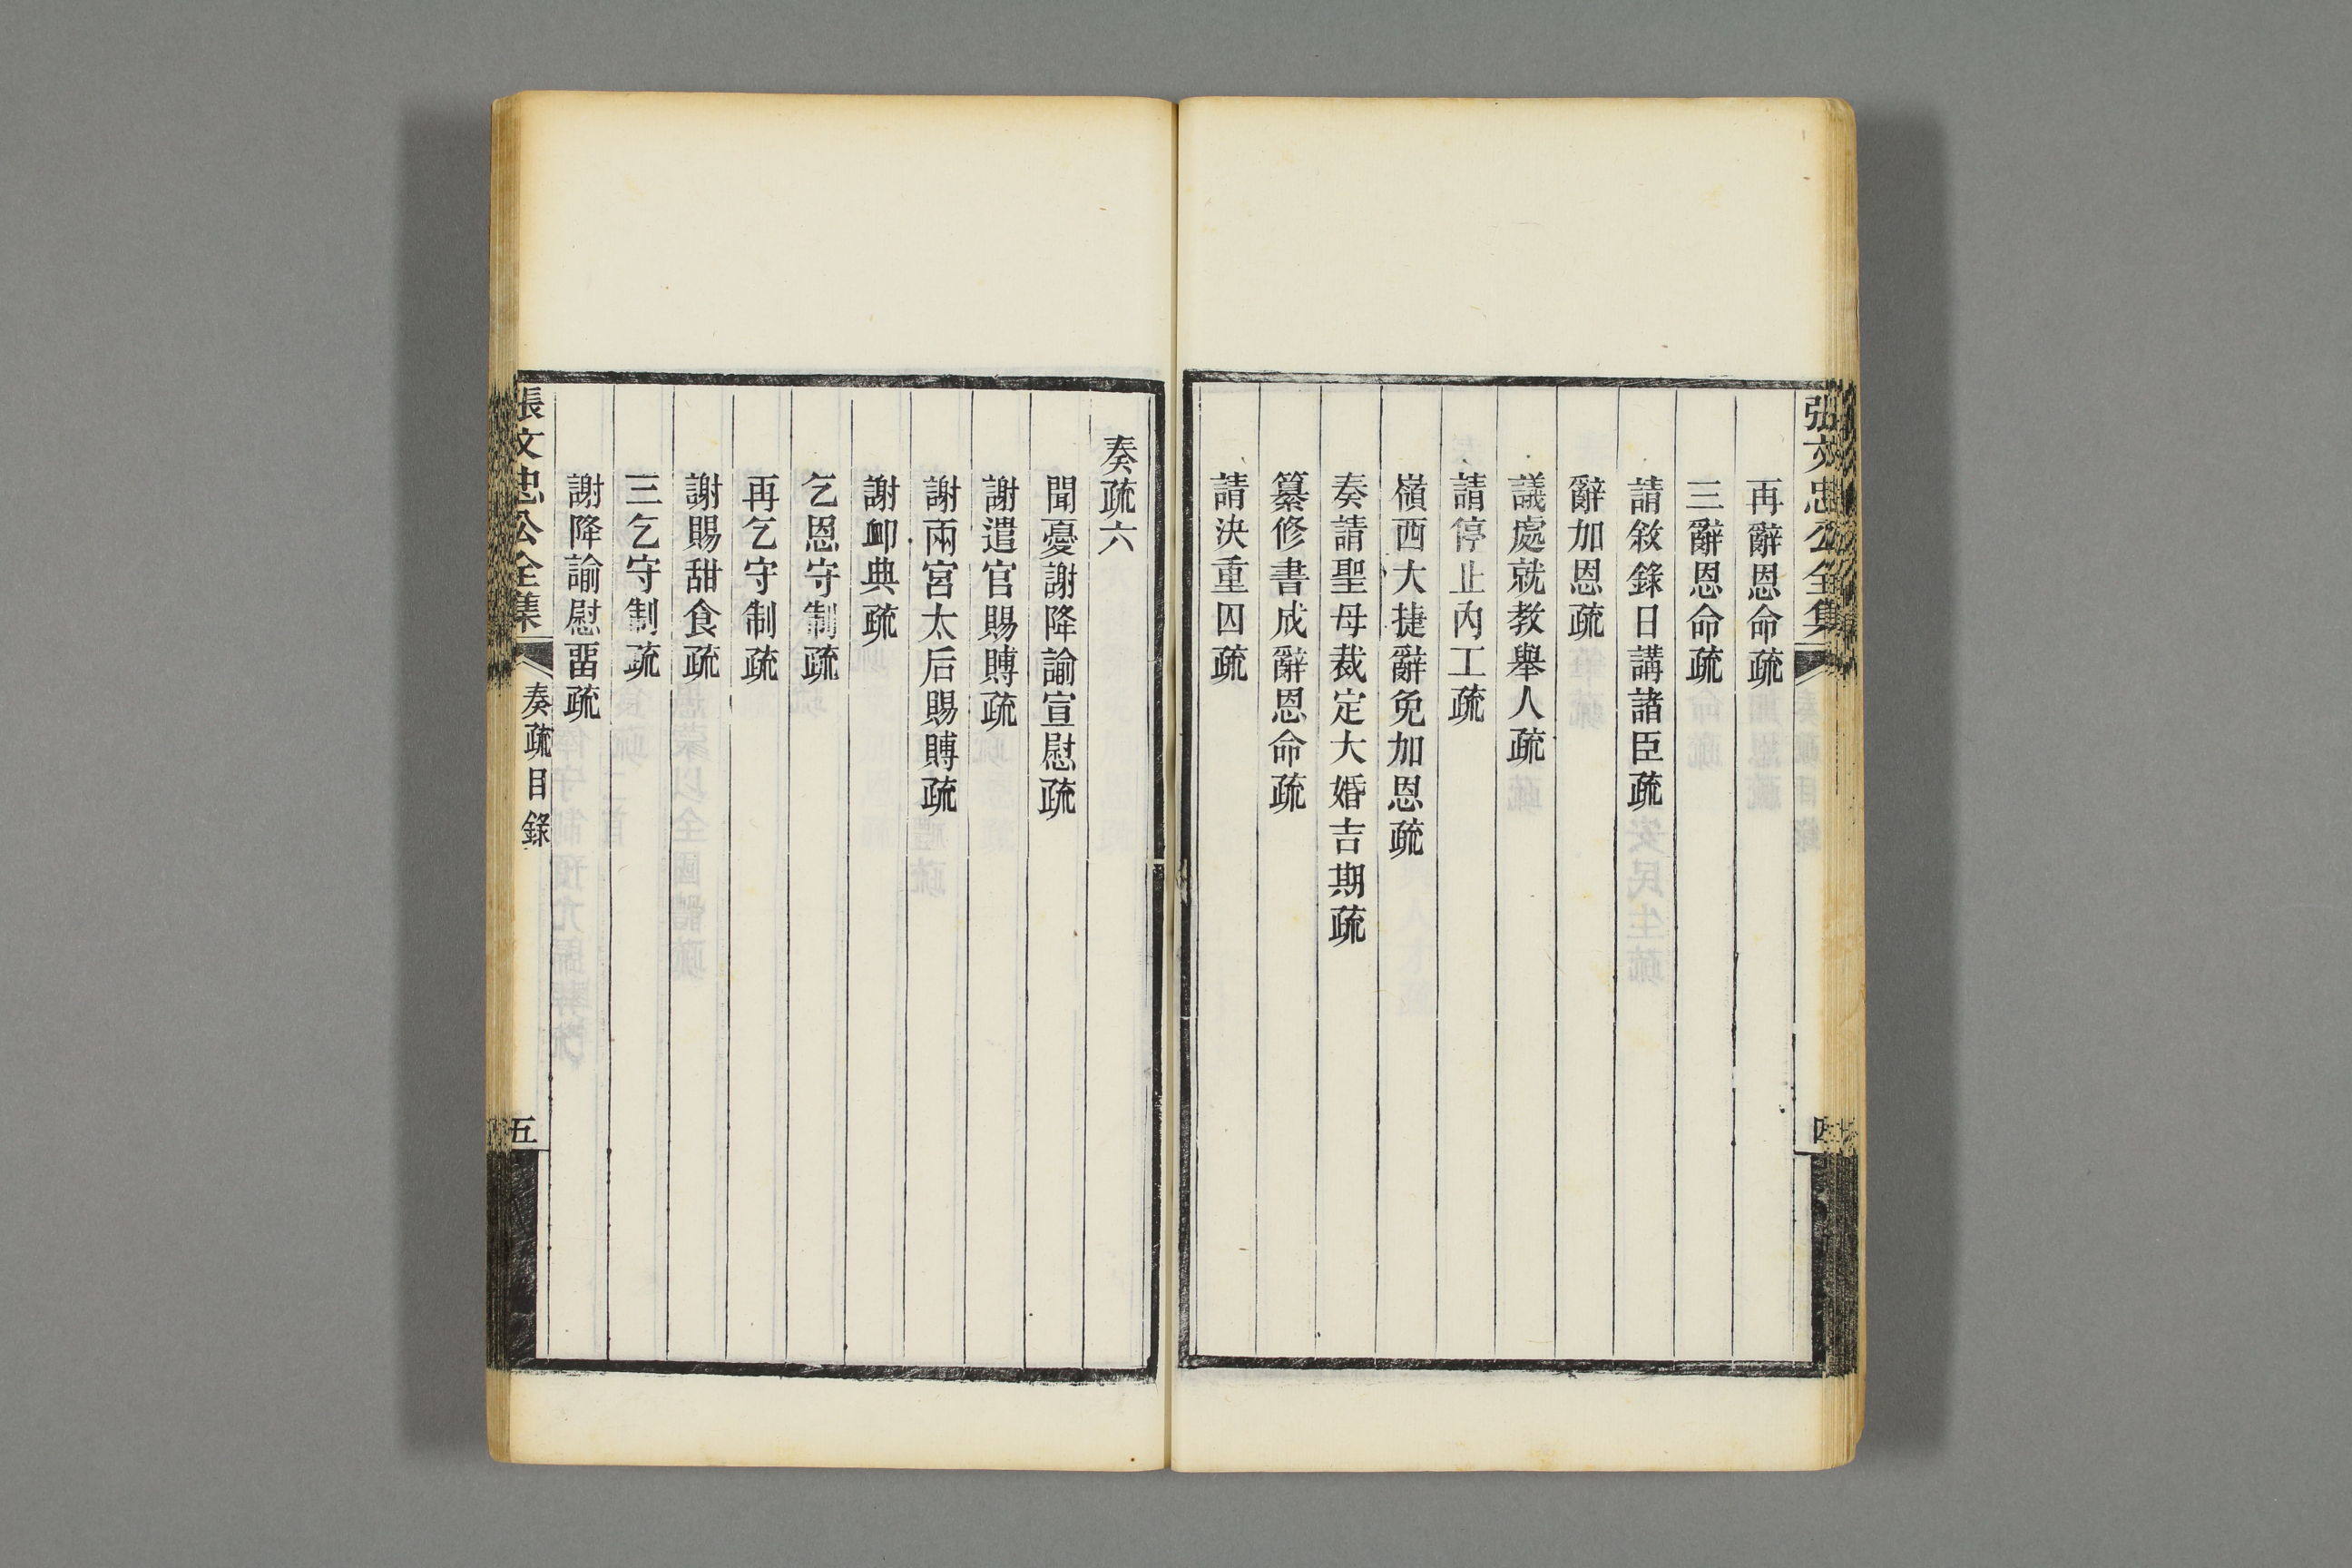 張文忠公全集
四
再辭恩命疏
三辭恩命疏
請敘錄日講諸臣疏
辭加恩疏
議處就教舉人疏
請停止內工疏
嶺西大捷辭免加恩疏
奏請聖母裁定大婚吉期疏
纂修書成辭恩命疏
請決重囚疏
奏疏六
聞憂謝降諭宣慰疏
謝遣官賜賻疏
謝兩宮太后賜賻疏
謝卹典疏
乞恩守制疏
再乞守制疏
謝賜甜食疏
三乞守制疏
謝降諭慰畱疏
張文忠公全集
奏疏目錄
五